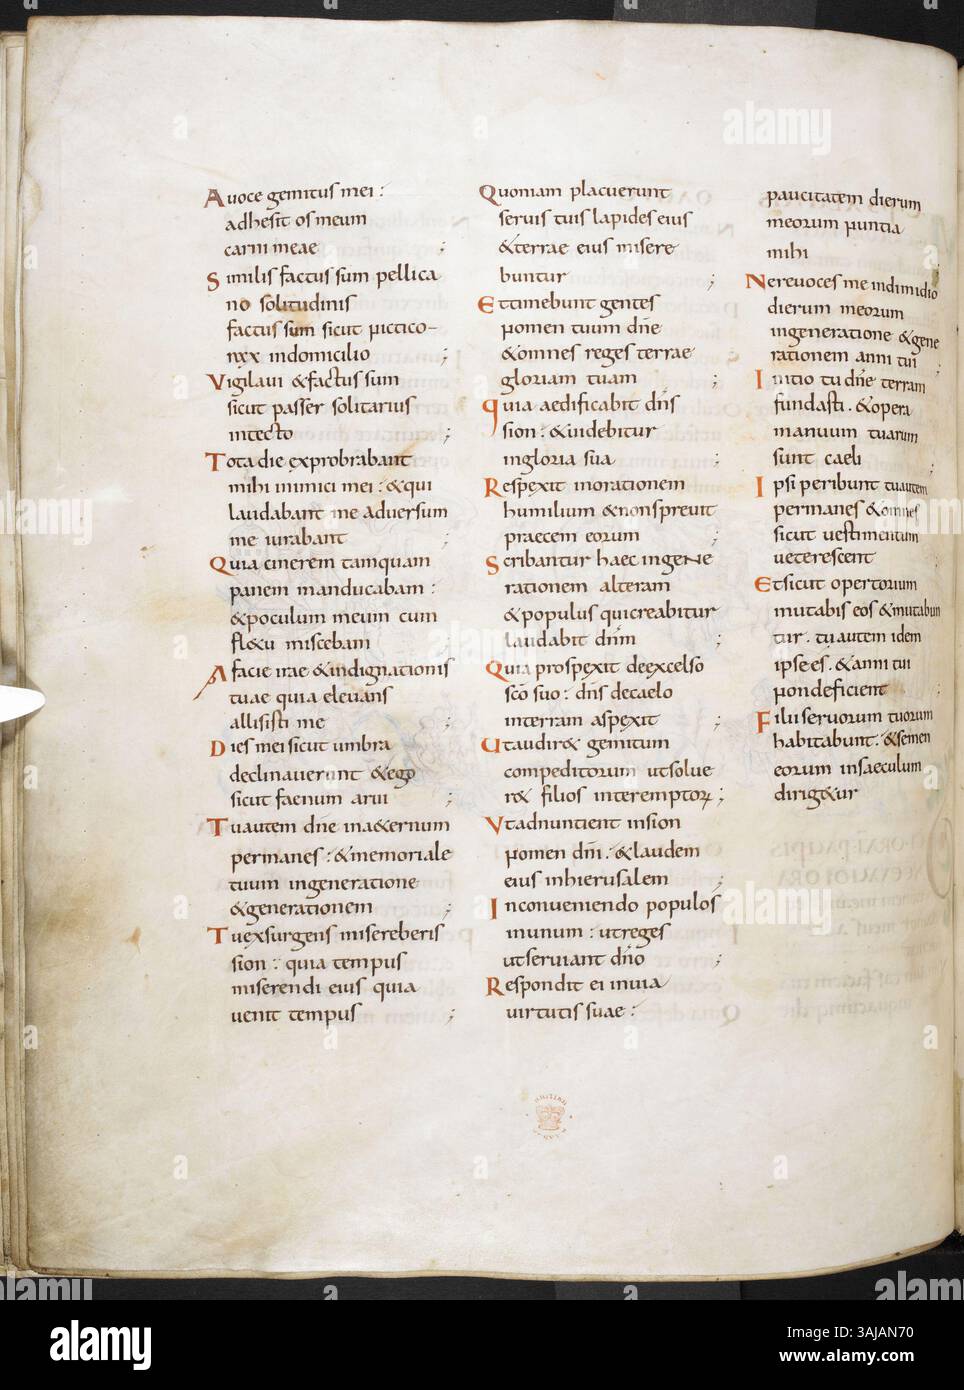 Auoce gemitus mei :
adhesit os meum
carni meae ;
Similis factus sum pellica
no solitudinis
factus sum sicut nictico–
rax indomicilio ;
Vigilaui &factus sum
sicut passer solitarius
intecto ;
Tota die exprobrabant
mihi inimici mei : &qui
laudabant me aduersum
me iurabant ;
Quia cinerem tamquam
panem manducabam :
&poculum meum cum
fl&u miscebam ;
Afacie irae &indignationis
tuae quia eleuans
allisisti me ;
Dies mei sicut umbra
declinauerunt &ego
sicut faenum arui ;
Tuautem dñe ina&ernum
permanes : &memoriale
tuum ingeneratione
&generationem ;
Tuexsurgens misereberis
sion : quia tempus
miserendi eius quia
uenit tempus ;
Quoniam placuerunt
seruis tuis lapides eius
&terrae eius misere
buntur ;
Ettimebunt gentes
nomen tuum dñe
&omnes reges terrae
gloriam tuam ;
quia aedificabit dñs
sion : &uidebitur
ingloria sua ;
Respexit inorationem
humilium &nonspreuit
praecem eorum ;
Scribantur haec ingene
rationem alteram
&populus quicreabitur
laudabit dñm ;
Quia prospexit deexcelso
sco suo : dñs decaelo
interram aspexit ;
Utaudir& gemitum
compeditorum utsolue
r& filios interemptoꝝ ;
Vtadnuntient insion
nomen dñi . &laudem
eius inhierusalem ;
Inconueniendo populos
inunum : utreges
utseruiant dño ;
Respondit ei inuia
uirtutis suae :
paucitatem dierum
meorum nuntia
mihi ;
Nereuoces me indimidio
dierum meorum
ingeneratione &gene
rationem anni tui ;
Initio tu dñe terram
fundasti . &opera
manuum tuarum
sunt caeli ;
Ipsi peribunt tuautem
permanes &omnes
sicut uestimentum
ueterescent
Etsicut opertorium
mutabis eos &mutabun
tur . tuautem idem
ipse es . &anni tui
nondeficient ;
Filii seruorum tuorum
habitabunt . &semen
eorum insaeculum
dirig&ur
alamy
Image ID: 3AJAN70
www.alamy.com